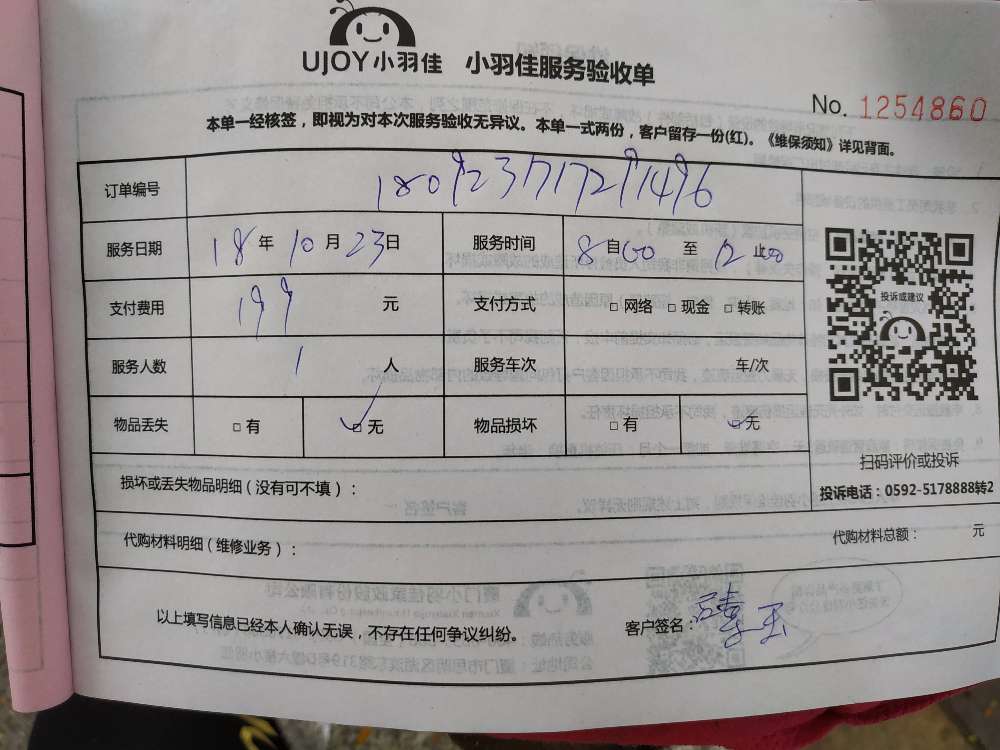 UJOY小羽佳 小羽佳服务验收单
No. 1254860
本单一经核签，即视为对本次服务验收无异议。本单一式两份，客户留存一份(红)。《维保须知》详见背面。
订单编号 180923717291496
服务日期 18年10月23日 服务时间 8自00至12止00
支付费用 199元 支付方式 □网络 □现金 □转账
投诉或建议
服务人数 1人 服务车次 车/次
物品丢失 □有 ☑无 物品损坏 □有 ☑无
扫码评价或投诉
损坏或丢失物品明细（没有可不填）：
投诉电话：0592-5178888转2
代购材料明细（维修业务）：
代购材料总额： 元
以上填写信息已经本人确认无误，不存在任何争议纠纷。
客户签名：